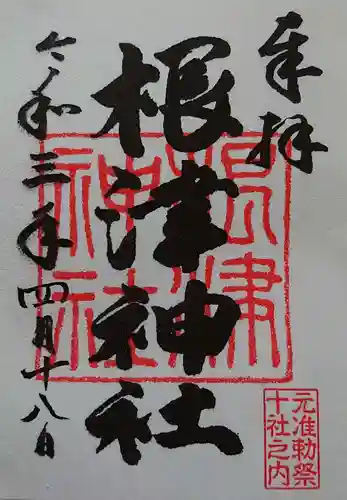 奉拝
根津神社
令和三年四月十八日
根津
神社
元准勅祭
十社之内